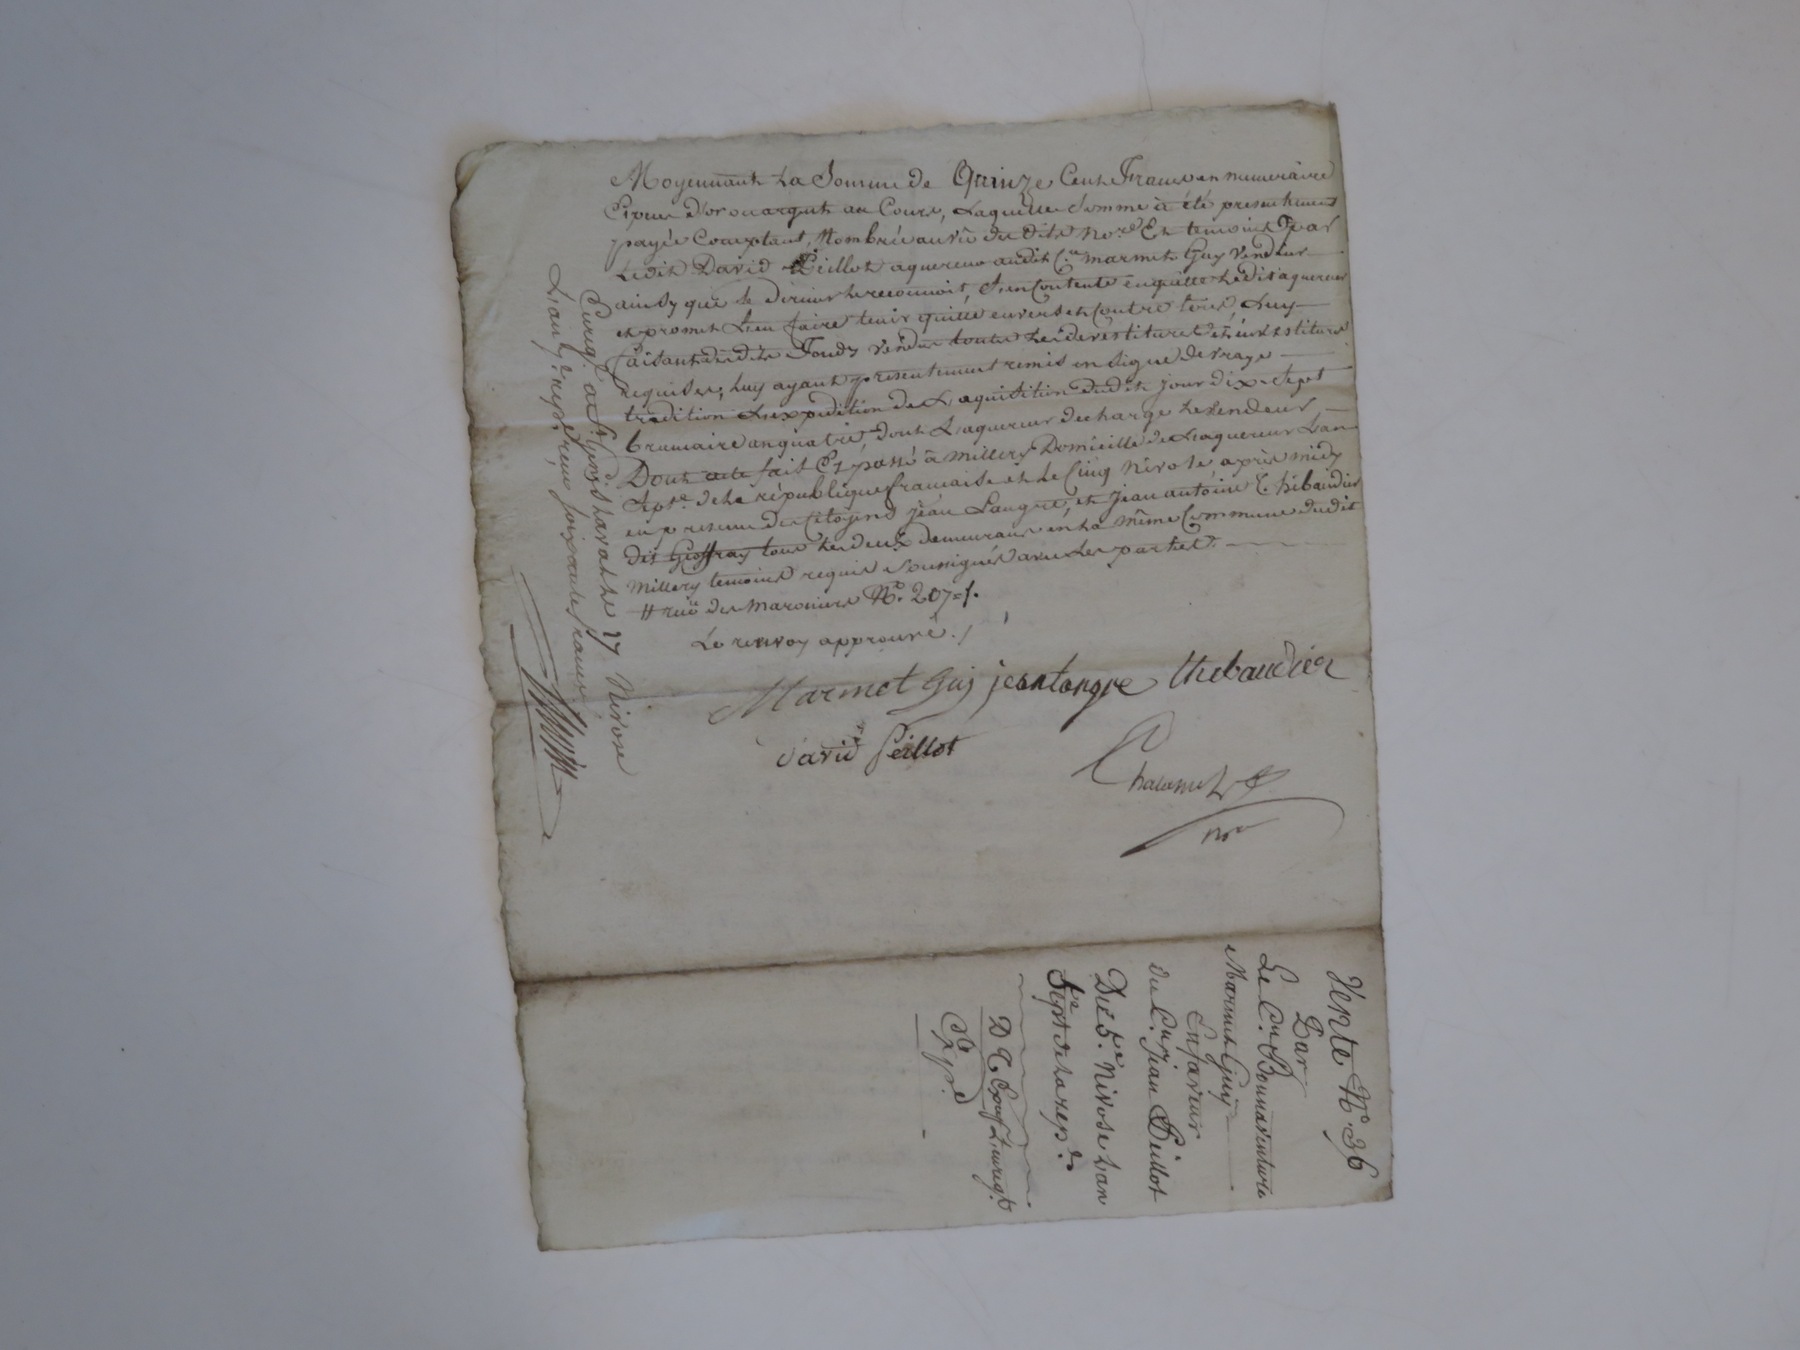 Moyennant La Somme de Quinze Cent Francs en numeraire
Especes d'or ou argent au Cours, Laquelle Somme à été presentement
payée Comptant, Nombrée au vû du dit No.re Et temoins Par
Ledit David Peillot aquereur audit C.en marmet Guy Vendeur
ainsy que le dernier Le reconnoit, S'en Contente en quitte Ledit aquereur
et promet L'en faire tenir quitte envers et Contre tous, Luy
faisant du dit Fonds vendu toutes Les devestitures et investitures
requises, Luy ayant presentement remis en signe de vraye
tradition L'expedition de L'aquisition dudit jour dix-Sept
brumaire an quatre, dont L'aquereur decharge Le Vendeur,
Dont acte fait Et passé à Millery Domicille de L'aquereur L'an
Sept.e de La république francaise et Le Cinq Nivose après midy
en presence des Citoyens jean Langre, et Jean antoine Thibaudier
dit Geoffray tous Les deux demeurans en La même Commune dudit
Millery temoins requis Soussignés avec Les parties.
# ruë des Maroniers N.o 207 =/.
Le renvoy approuvé ./
Marmet Guy jean Langre thibaudier
david Peillot
Chalamel
no.re
Enreg.é à St Genis Laval Le 17 Nivose
L'an 7.e rep. reçu soixante francs
Vente N.o 36
Par
Le C.en Bonnaventure
Marmet Guy
En faveur
Du C.en jean Peillot
Du 5.e Nivose L'an
Sept.e de La rep.e
Exp.é